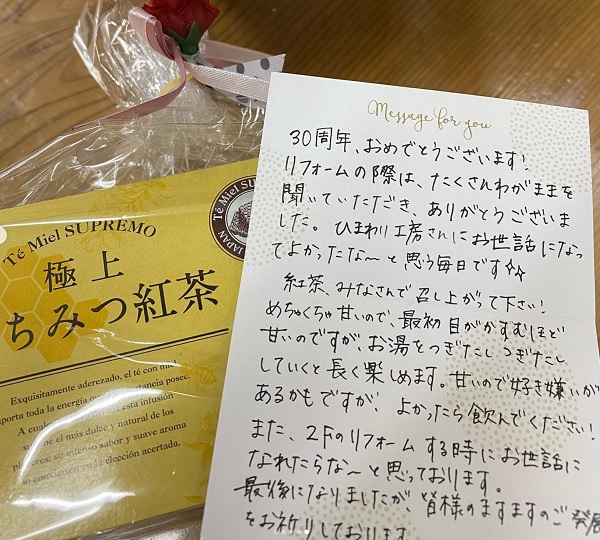 Té Miel SUPREMO
極上
ちみつ紅茶
Té Miel SUPREMO
JAPAN
Exquisitamente aderezado, el té con miel
aporta toda la energía
posee.
A cualquier
esta infusión
el más dulce y natural de los
placeres: su intenso sabor y suave aroma
lo convierten en la elección acertada.
Message for you
30周年、おめでとうございます!
リフォームの際は、たくさんわがままを
聞いていただき、ありがとうございま
した。ひまわり工房さんにお世話になっ
てよかったな〜と思う毎日です☆☆
紅茶、みなさんで召し上がって下さい!
めちゃくちゃ甘いので、最初目がかすむほど
甘いのですが、お湯をつぎたしつぎたし
していくと長く楽しめます。甘いので好き嫌いが
あるかもですが、よかったら飲んでください!
また、2Fのリフォームする時にお世話に
なれたらな〜と思っております。
最後になりましたが、皆様のますますのご発展
をお祈りしております